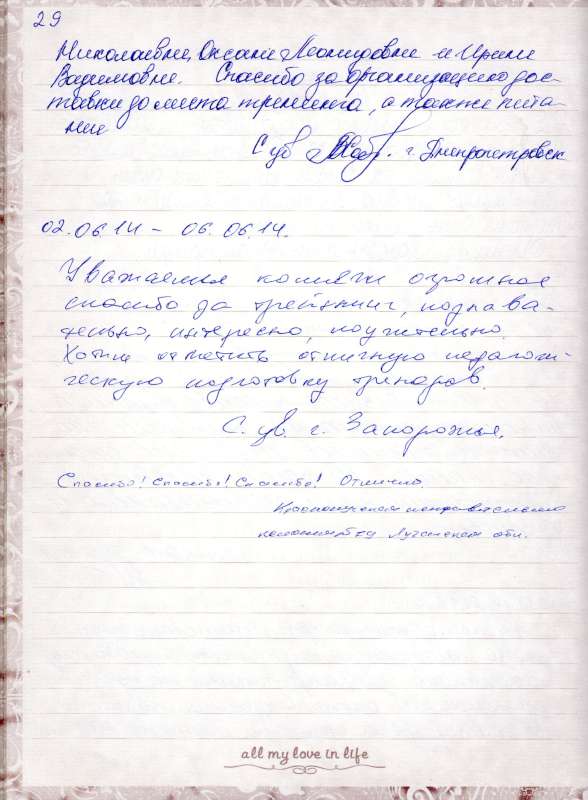 29
Николаевне, Оксане Леонидовне и Ирине
Вадимовне. Спасибо за организацию дос-
тавки до места тренинга, а также пита-
ние
С ув г. Днепропетровск
02.06.14 - 06.06.14.
Уважаемые коллеги огромное
спасибо за трейнинг, позна ва-
тельно, интересно, поучительно.
Хотим отметить отличную педагоги-
ческую подготовку тренеров.
С. ув. г. Запорожье.
Спасибо! Спасибо! Спасибо! Отлично
Луганская обл.
all my love in life